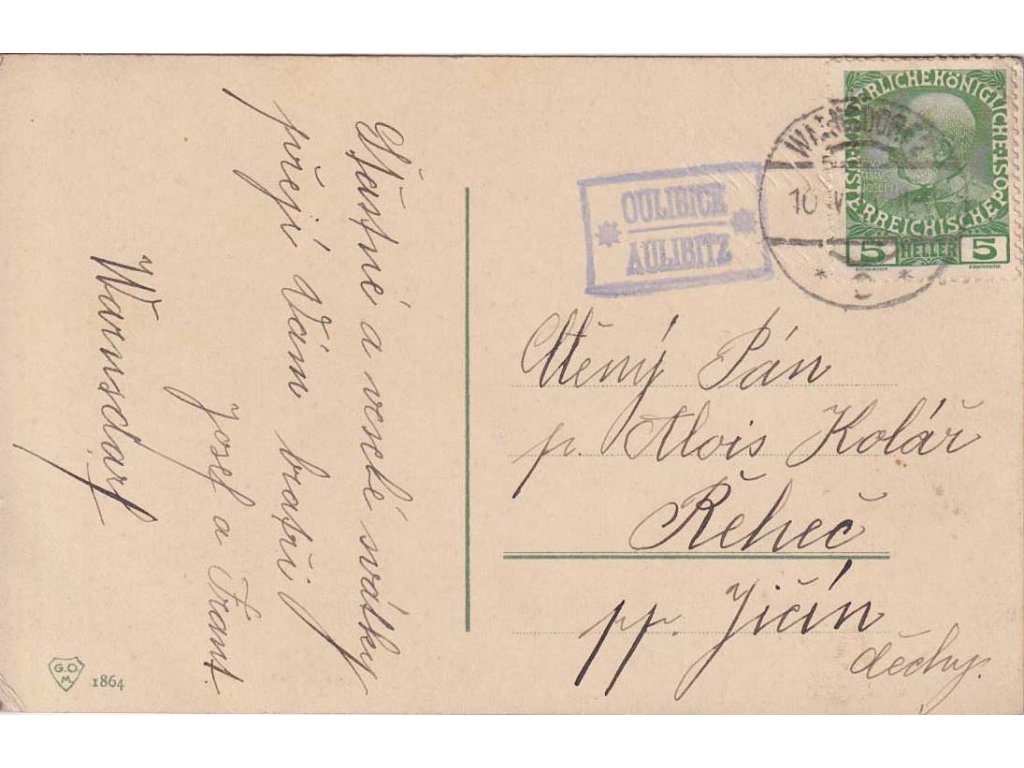 Šťastné a veselé svátky
přejí Vám bratři
Josef a Frant.
Warnsdorf
OULIBICE
AULIBITZ
WARNSDORF
10
KAISERLICHE KÖNIGLICHE
ÖSTERREICHISCHE POST
5 HELLER 5
Ctěný Pán
p. Alois Kolář
Řeheč
pp. Jičín
Čechy.
G.O.
M.
1864